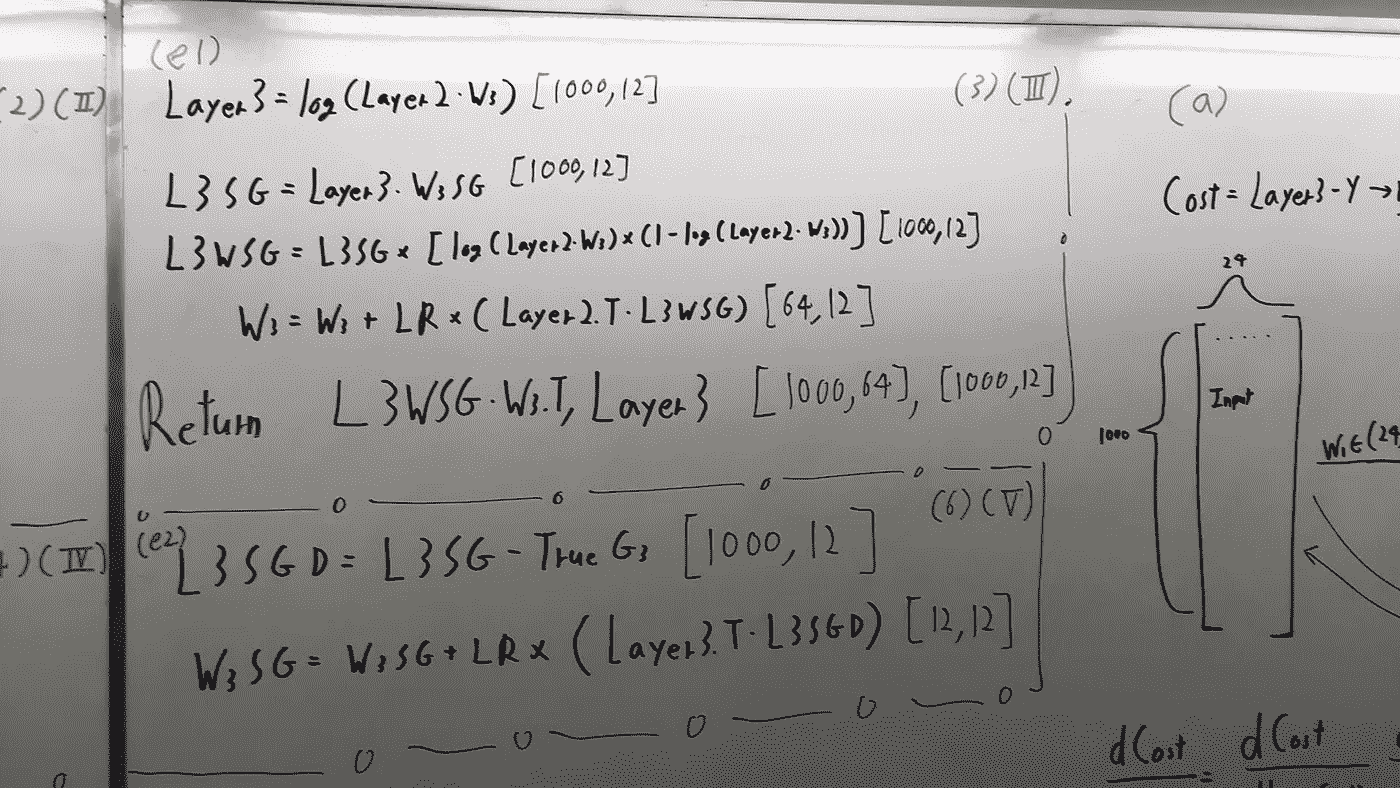 (2)(II)
(e1)
Layer3 = log(Layer2·W3) [1000,12]
(3)(III).
L3SG = Layer3·W3SG [1000,12]
L3WSG = L3SG × [log(Layer2·W3)×(1-log(Layer2·W3))] [1000,12]
W3 = W3 + LR × (Layer2.T·L3WSG) [64,12]
Return L3WSG·W3.T, Layer3 [1000,64], [1000,12]
(6)(V)
)(IV)
(e2)
L3SGD = L3SG - True G3 [1000,12]
W3SG = W3SG + LR × (Layer3.T·L3SGD) [12,12]
(a)
Cost = Layer3-Y →
24
.....
Input
1000
W1∈(24,
dCost = dCost